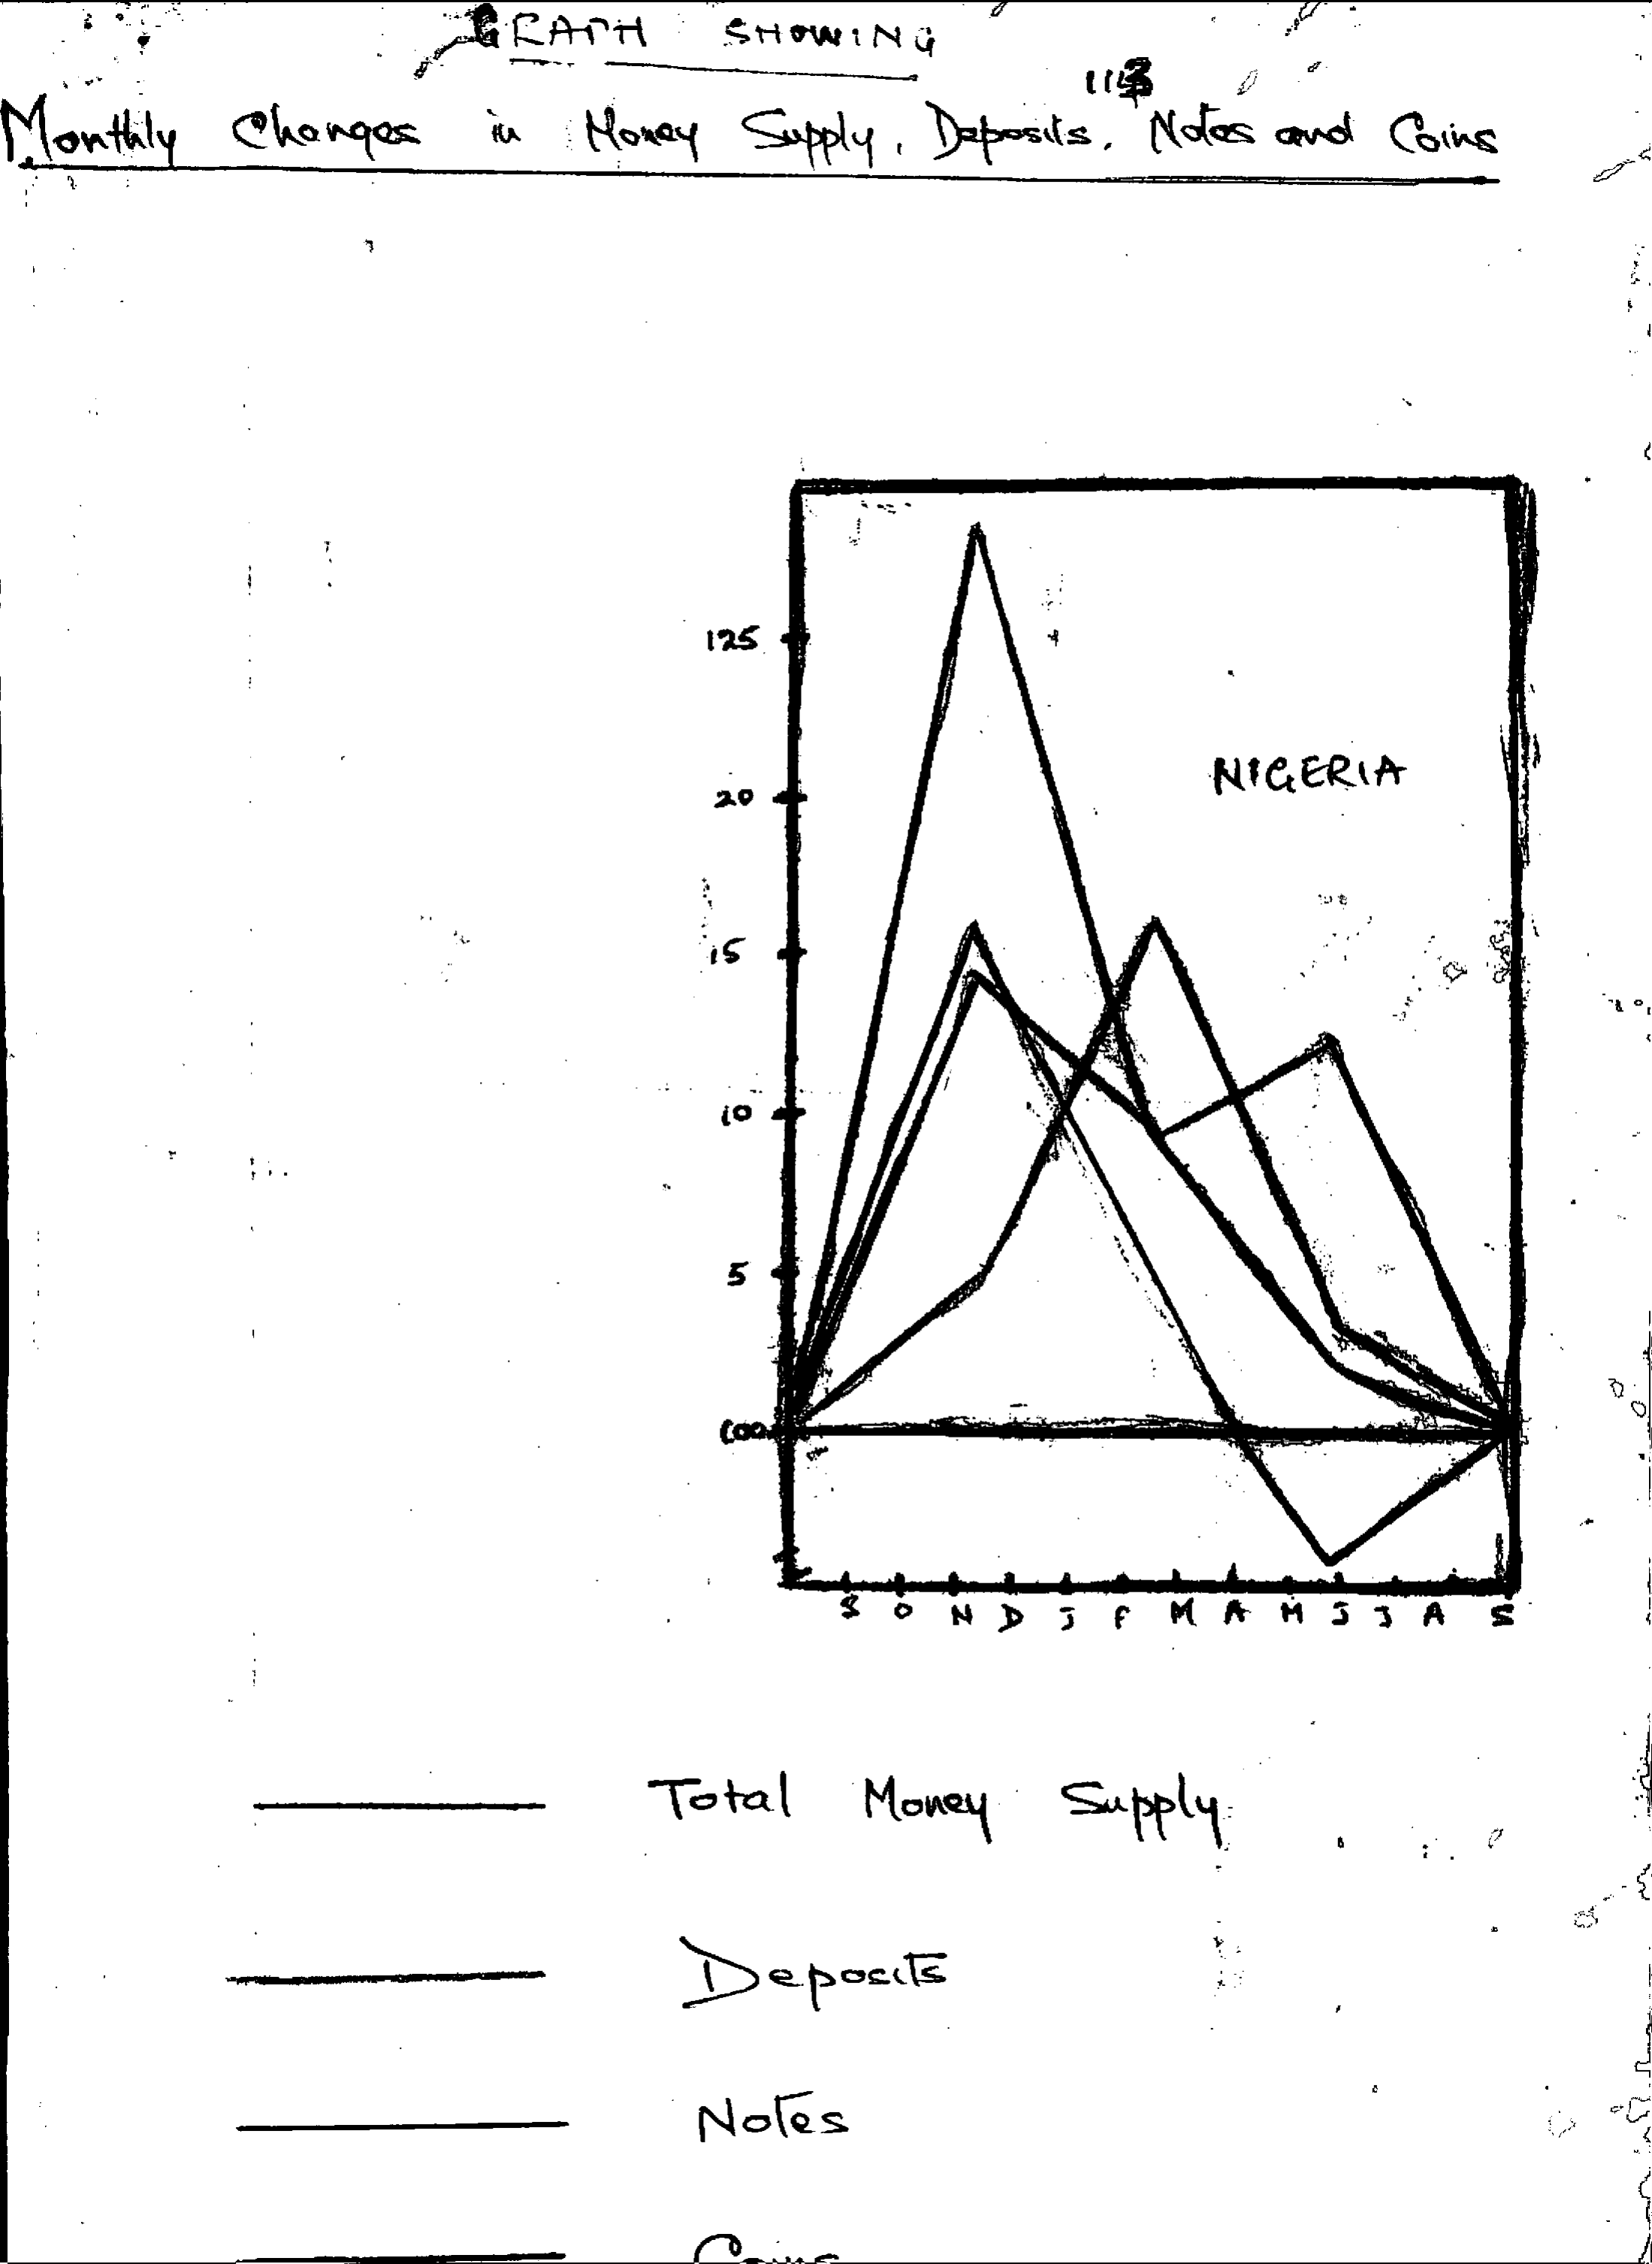 GRAPH SHOWING
113
Monthly Changes in Money Supply, Deposits, Notes and Coins
125
NIGERIA
20
15
10
5
100
S O N D J F M A M J J A S
Total Money Supply
Deposits
Notes
Coins